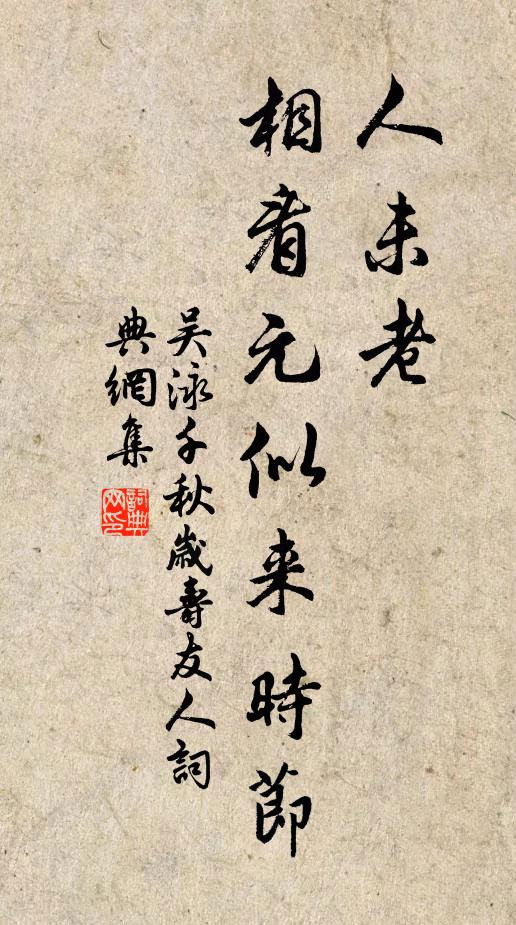 人未老
相看元似来時節
吴泳千秋歲壽友人詞
典網集
詞典网印